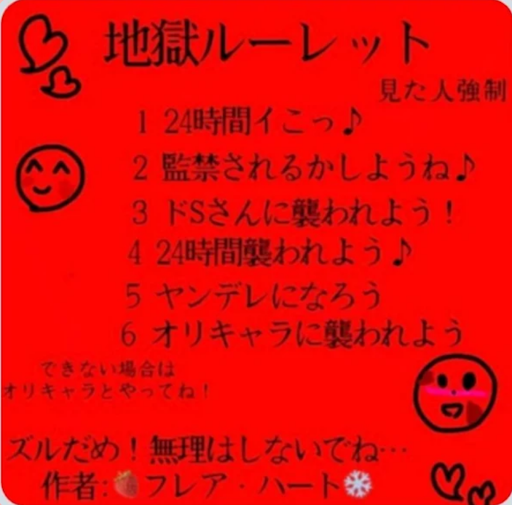 地獄ルーレット
見た人強制
1 24時間イこっ♪
2 監禁されるかしようね♪
3 ドSさんに襲われよう！
4 24時間襲われよう♪
5 ヤンデレになろう
6 オリキャラに襲われよう
できない場合は
オリキャラとやってね！
ズルだめ！無理はしないでね…
作者:🍓フレア・ハート❄